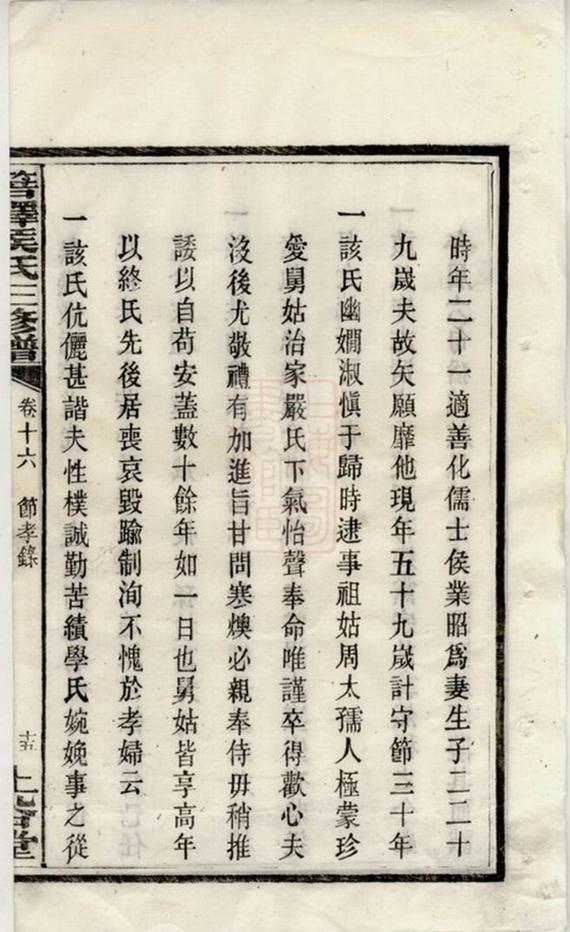 時年二十一適善化儒士侯業昭爲妻生子二二十
九歲夫故矢願靡他現年五十九歲計守節三十年
一該氏幽嫺淑愼于歸時逮事祖姑周太孺人極蒙珍
愛舅姑治家嚴氏下氣怡聲奉命唯謹卒得歡心夫
沒後尤敬禮有加進旨甘問寒燠必親奉侍毋稍推
諉以自苟安蓋數十餘年如一日也舅姑皆享高年
以終氏先後居喪哀毀踰制洵不愧於孝婦云
一該氏伉儷甚諧夫性樸誠勤苦績學氏婉娩事之從
氏三修譜
卷十六 節孝錄
十五
上谷堂